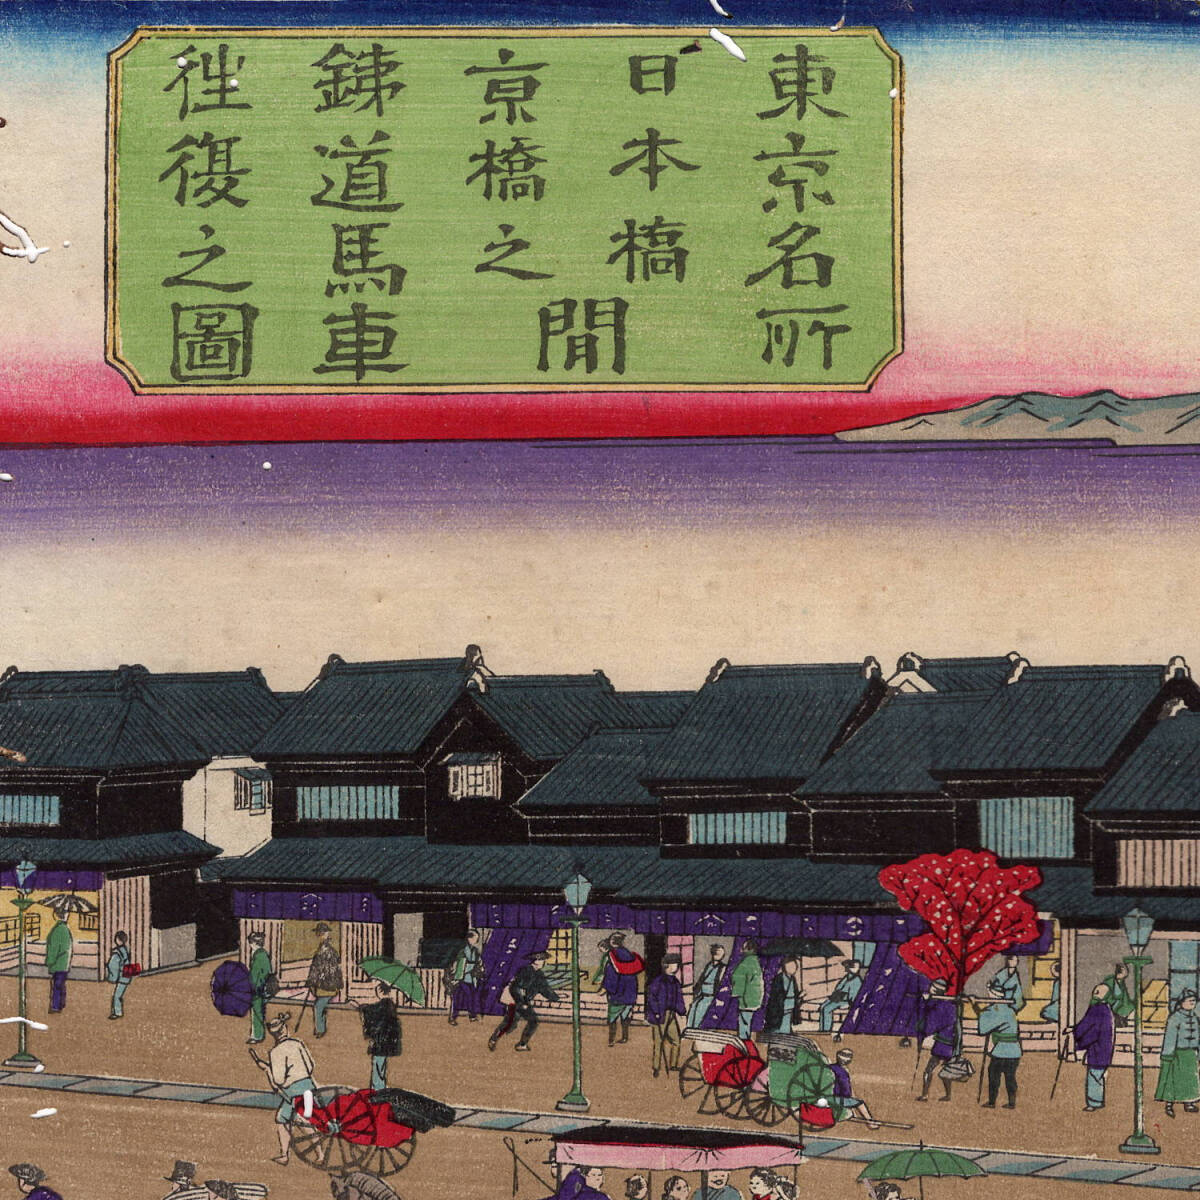 東京名所
日本橋
京橋之間
銕道馬車
徃復之圖